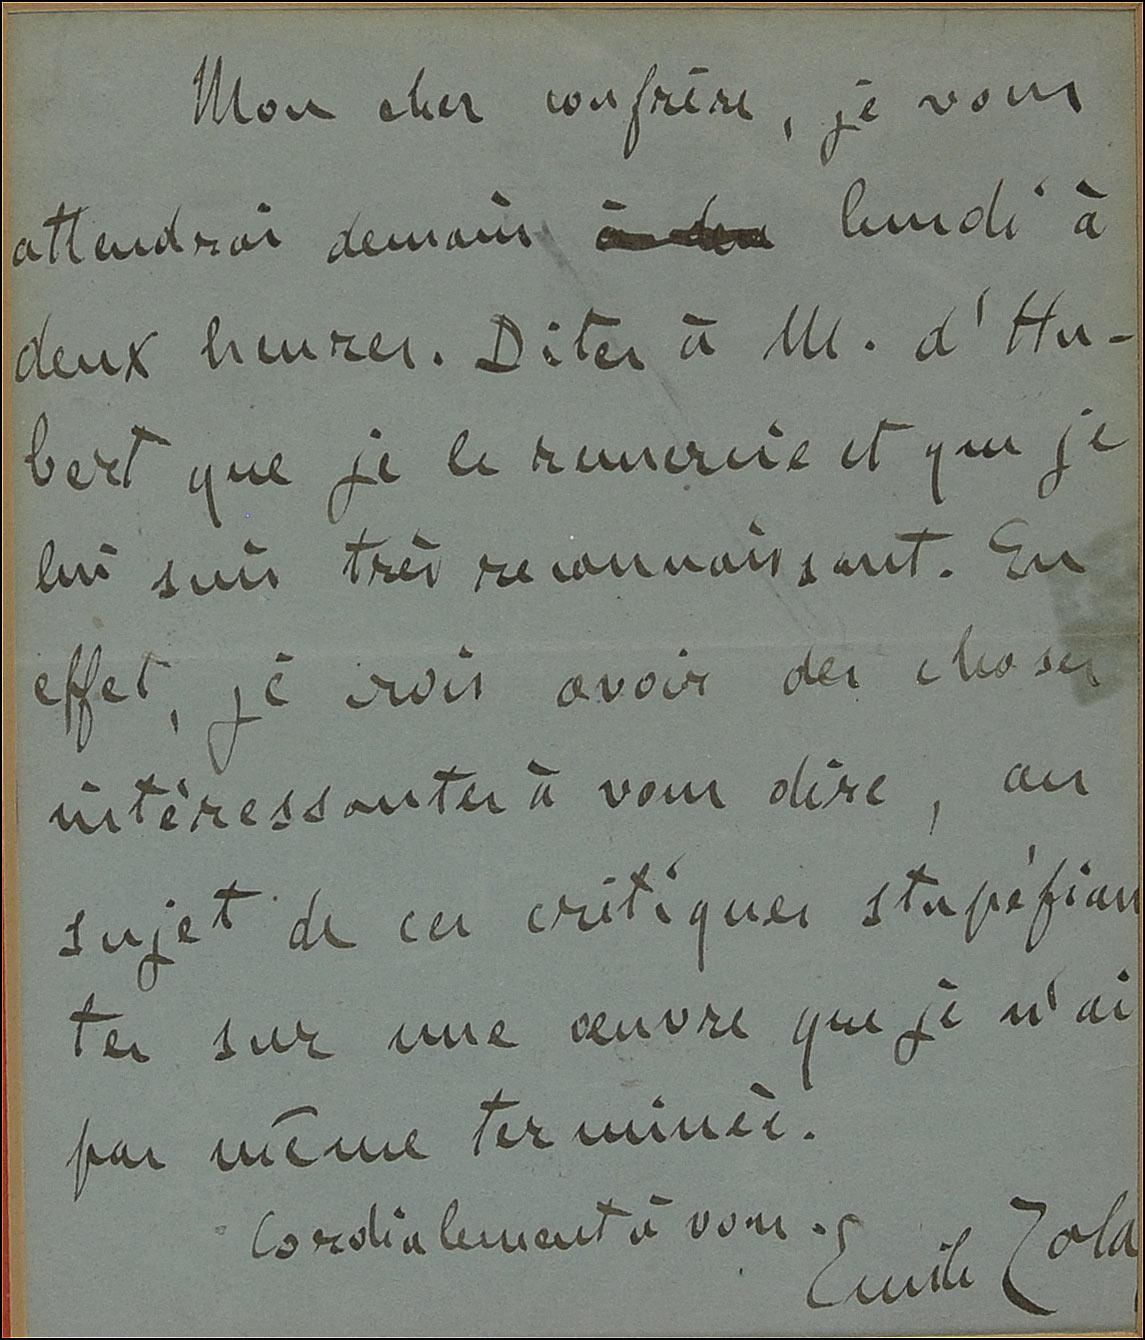 Mon cher confrère, je vous
attendrai demain à deu lundi à
deux heures. Dites à M. d'Hu-
bert que je le remercie et que je
lui suis très reconnaissant. En
effet, je crois avoir des choses
intéressantes à vous dire, au
sujet de ces critiques stupéfian
tes sur une œuvre que je n'ai
pas même terminée.
Cordialement à vous.
Emile Zola